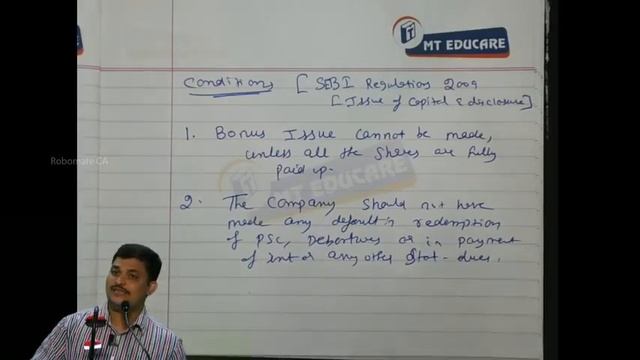 MT EDUCARE
Conditions [ SEBI Regulations 2009
[Issue of Capital & disclosure]
Robomate CA
1. Bonus Issue cannot be made,
unless all the shares are fully
paid up.
MT EDUCARE
2. The Company should not have
made any default in redemption
of PSC, Debentures or in payment
of Int or any other Stat. dues.